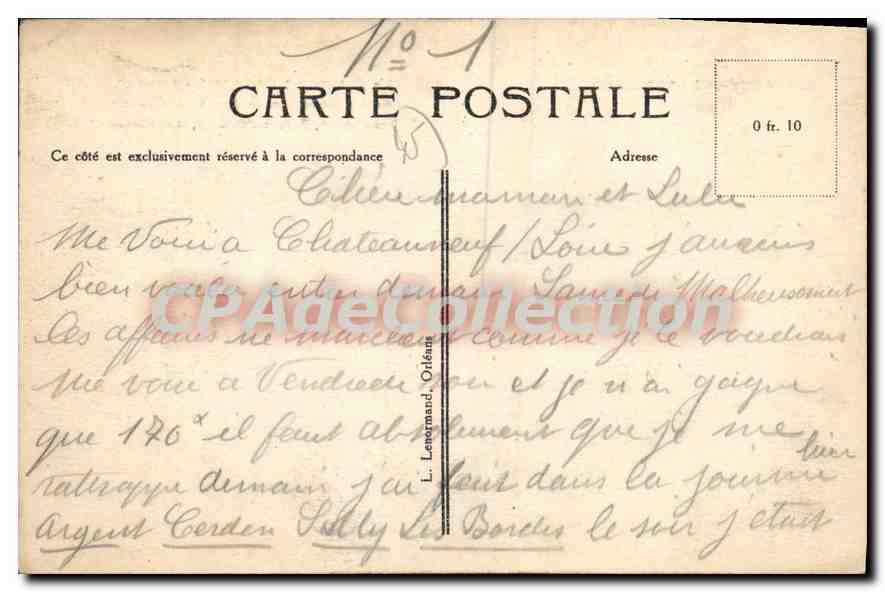 No 1
CARTE POSTALE
45
0 fr. 10
Ce côté est exclusivement réservé à la correspondance
Adresse
Chère maman et Lulu
Me Voici a Chateauneuf/Loire j'aurais
bien voulu entrer demain Samedi Malheureusement
les affaires ne marchent comme je le voudrais
me voici a Vendredi soir et je n'ai gagné
que 170 il faut absolument que je me
rattrappe demain j'ai fait dans la journée hier
Argent Cerdon Sully Les Bordes le soir j'etait
L. Lenormand, Orléans
CPAdeCollection.com